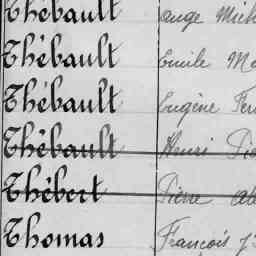 Thébault Ange Mich
Thébault Emile Ma
Thébault Eugène Fer
Thébault Henri Pie
Thébert Pierre
Thomas François